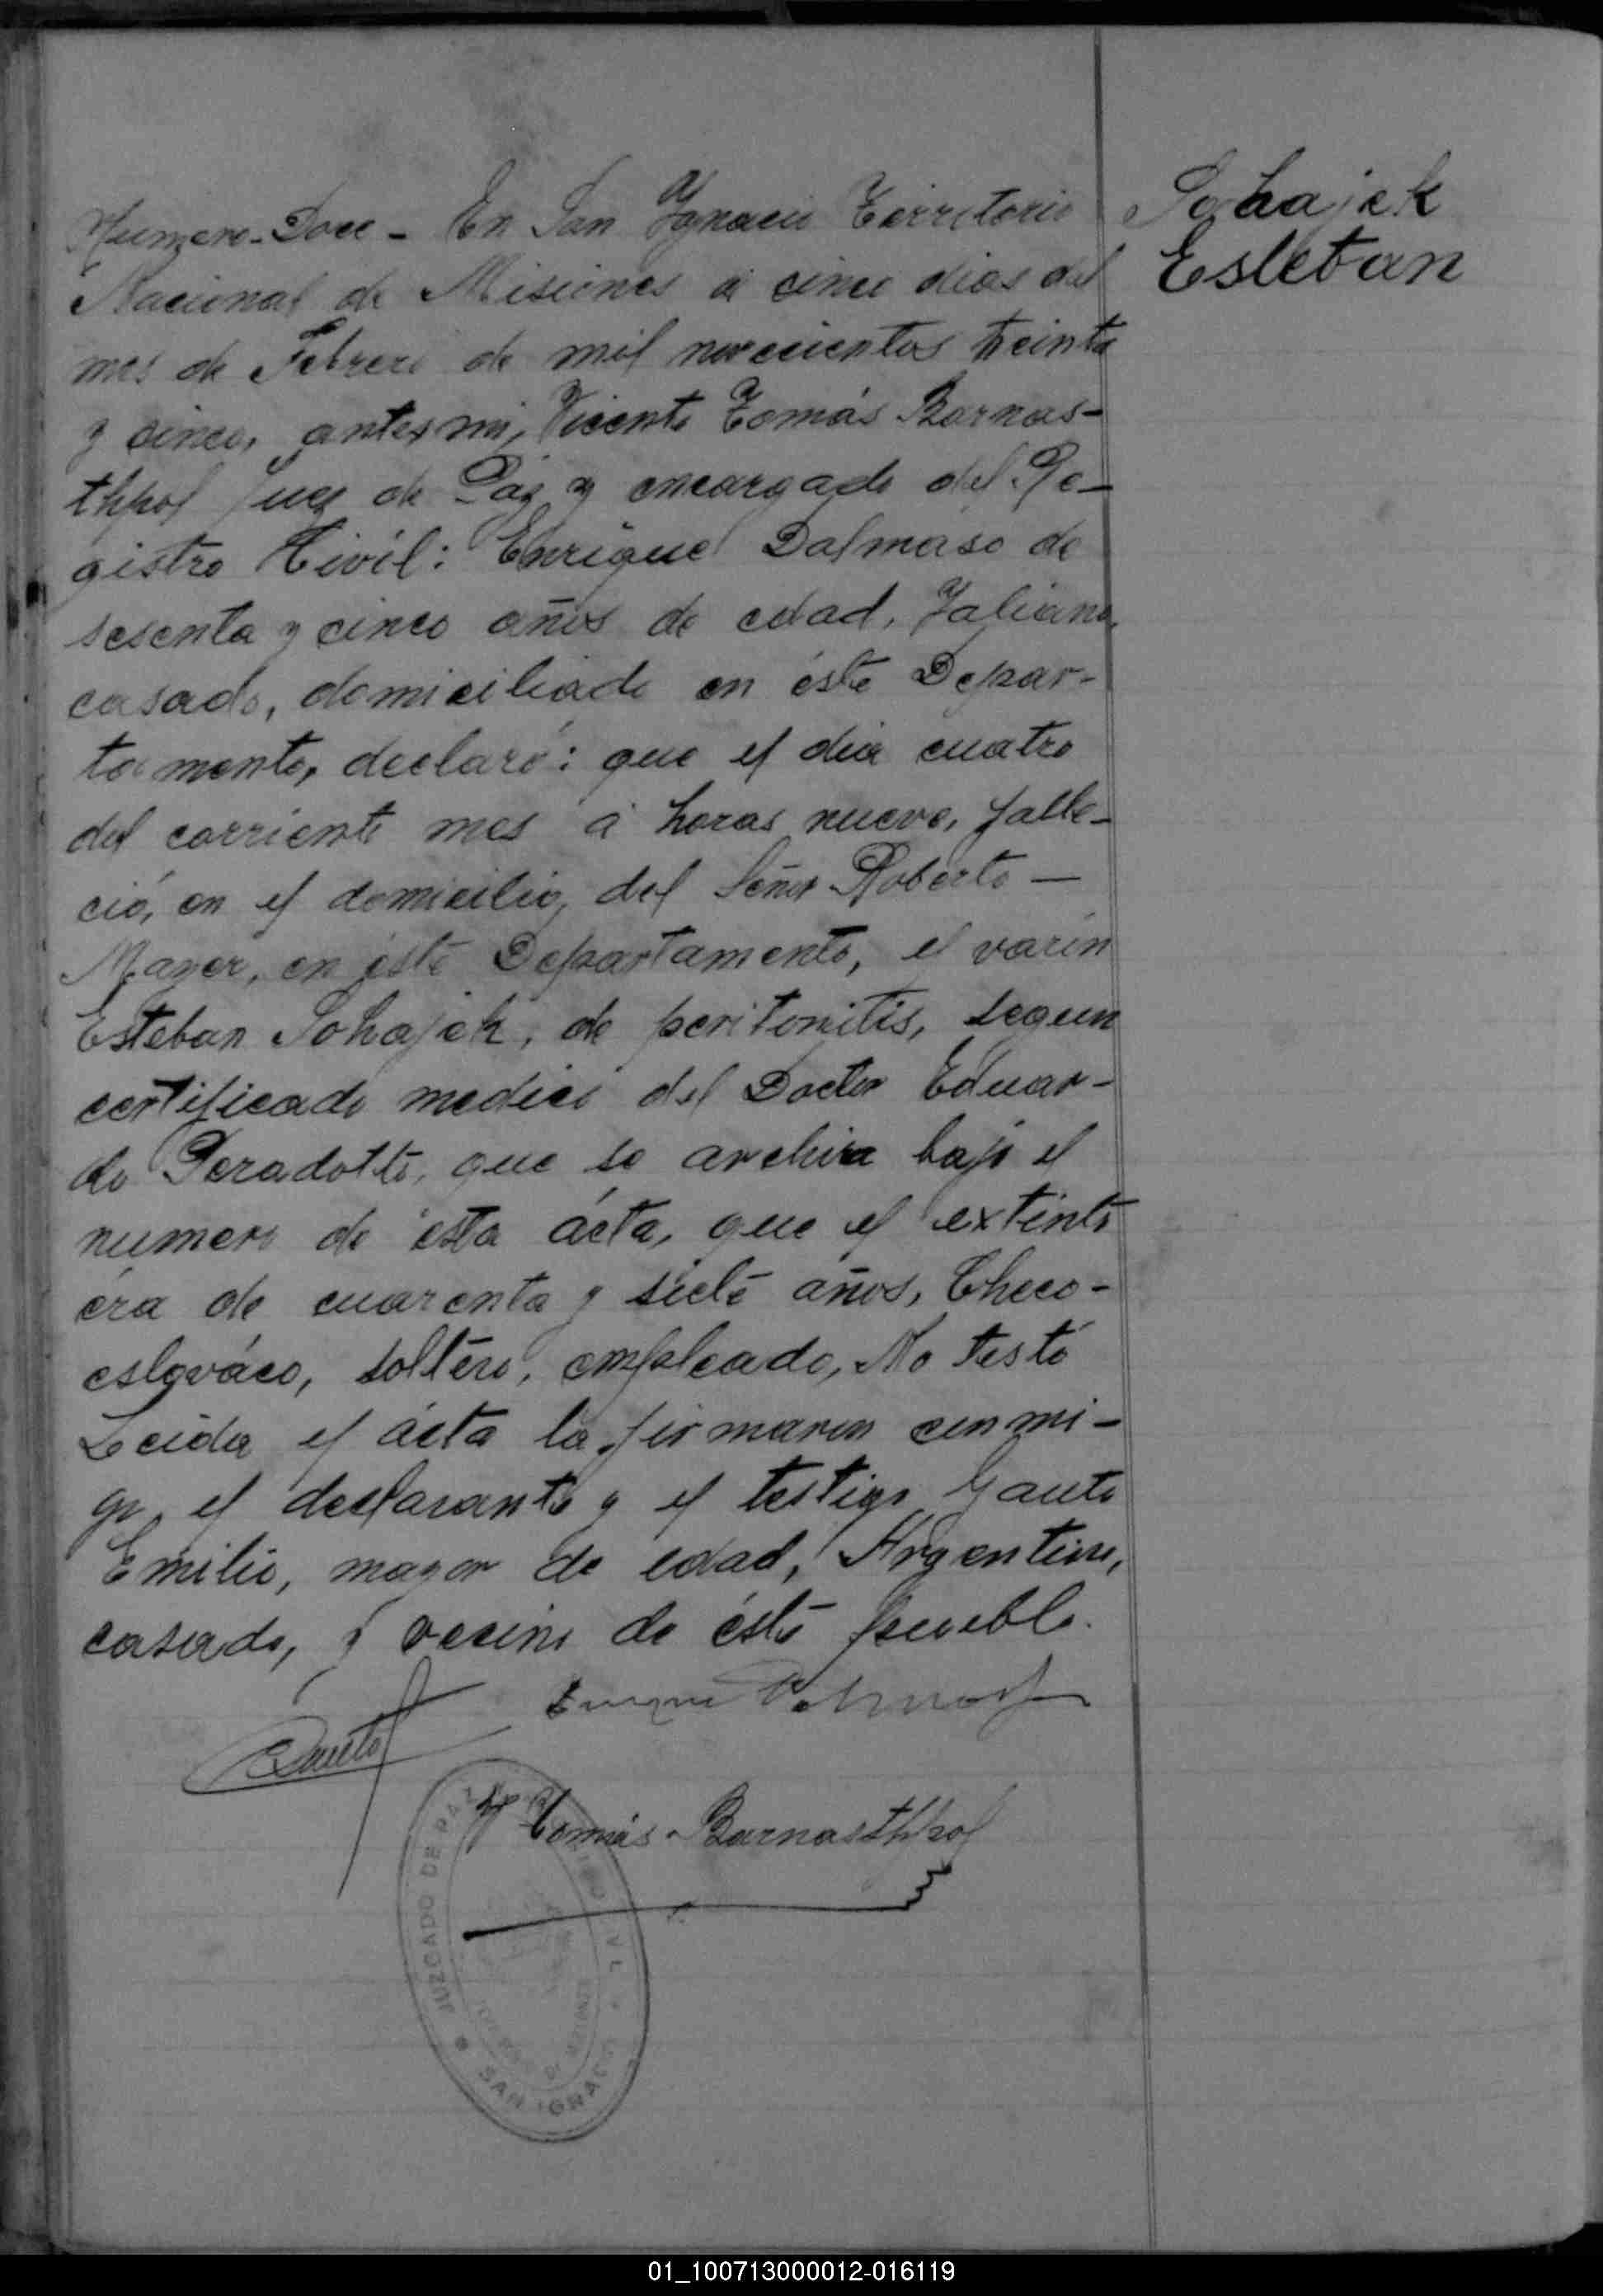 Numero-Doce - En San Ygnacio Territorio
Nacional de Misiones á cinco dias del
mes de Febrero de mil novecientos treinta
y cinco, antes mi, Vicente Tomás Barnas-
thpol Juez de Páz y encargado del Re-
gistro Civíl: Enrique Dalmaso de
sesenta y cinco años de edad, Italiano,
casado, domiciliado en éste Depar-
tamento, declaró: que el dia cuatro
del corriente mes á horas nueve, falle-
ció, en el domicilio, del Señor Roberto -
Mayer, en éste Departamento, el varón
Esteban Sohajek, de peritonitis, segun
certificado medico del Doctor Eduar-
do Peradotto, que se archiva bajo el
numero de ésta ácta, que el extinto
éra de cuarenta y siete años, Checo-
eslováco, soltéro, empleado, No testó
Leida el ácta la firmaron conmi-
go, el declarante y el testigo Gauto
Emilio, mayor de edad, Argentino,
casado, y vecino de éste pueblo.
Sohajek
Esteban
Enrique Dalmaso
Gauto
V Tomás Barnasthpol
JUZGADO DE PAZ
SAN IGNACIO
01_100713000012-016119